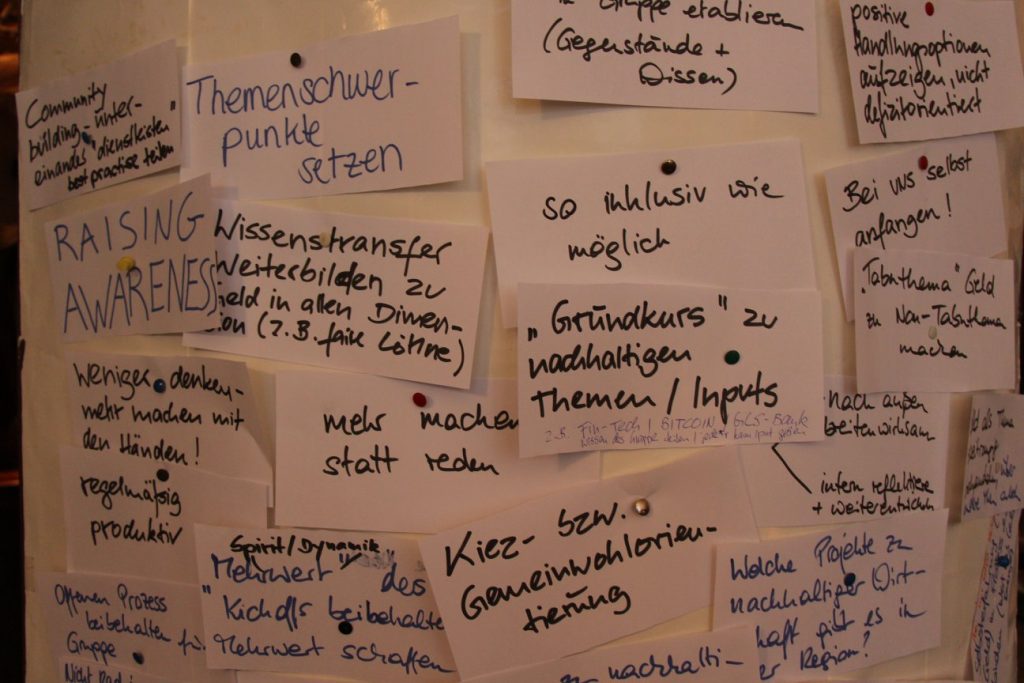 Community
building - unter-
einander "dienstleisten"
best practise teilen
Themenschwer-
punkte
setzen
in Gruppe etablieren
(Gegenstände +
Wissen)
positive
Handlungsoptionen
aufzeigen, nicht
defizitorientiert
RAISING
AWARENESS
Wissenstransfer
Weiterbilden zu
Geld in allen Dimen-
sion (z.B. faire Löhne)
so inklusiv wie
möglich
Bei uns selbst
anfangen!
„Tabuthema" Geld
zu Non-Tabuthema
machen
„Grundkurs" zu
nachhaltigen
Themen / Inputs
z.B. Fin-Tech / BITCOIN / GLS-Bank
Wissen der Gruppe teilen / jede*r kann Input geben
weniger denken -
mehr machen mit
den Händen!
mehr machen
statt reden
nach außen
arbeiten wirksam
intern reflektiere
+ weiterentwickeln
regelmäßig
produktiv
Kiez- bzw.
Gemeinwohlorien-
tierung
Spirit/Dynamik
"Mehrwert" des
Kickoffs beibehalte
Mehrwert schaffen
Welche Projekte zu
nachhaltiger Wirt-
haft gibt es in
er Region?
Offenen Prozess
beibehalten für
Gruppe
zu nachhalti-